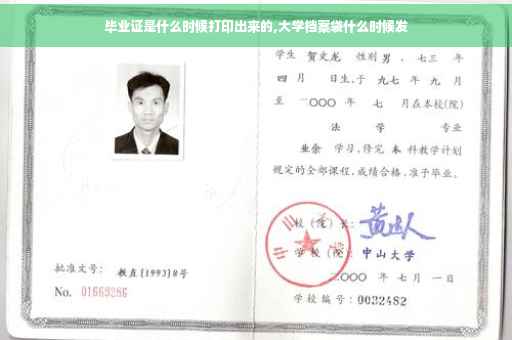 毕业证是什么时候打印出来的,大学档案袋什么时候发
学生 贺文龙 性别 男 、七三 年
四 月 日生,于 九七 年 九 月
至 二〇〇〇 年 七 月在本校(院)
法 学 专业
业余 学习,修完 本 科教学计划
规定的全部课程,成绩合格,准予毕业。
校(院)长:
学校(院):中山大学
二〇〇〇 年 七 月 一 日
学校编号:0032482
批准文号:教直[1993]8号
No. 01669286